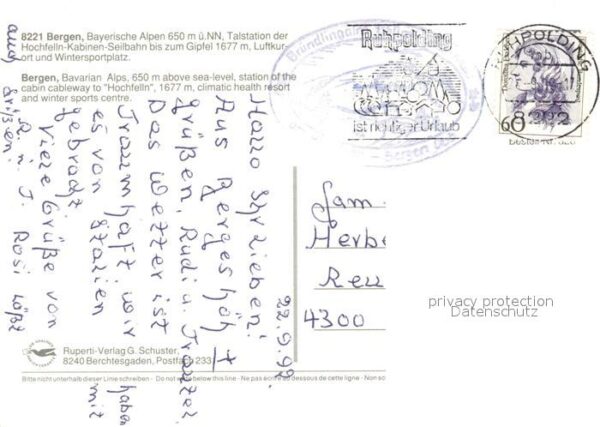 8221 Bergen, Bayerische Alpen 650 m ü.NN, Talstation der
Hochfelln-Kabinen-Seilbahn bis zum Gipfel 1677 m, Luftkur-
ort und Wintersportplatz.
Bergen, Bavarian Alps, 650 m above sea-level, station of the
cabin cableway to "Hochfelln", 1677 m, climatic health resort
and winter sports centre.
Ruhpolding
ist richtiger Urlaub
Bergen
RUHPOLDING
8222
60
22.9.92
Hallo Ihr Lieben!
Aus Berges
grüßen, Rudi u.
Das Wetter ist
Traumhaft, wir haben
es von Italien mit
gebracht.
Viele Grüße von
R. u. T. Rosi läßt
auch
Grüßen.
Fam.
Herbe
4300
privacy protection
Datenschutz
Ruperti-Verlag G. Schuster,
8240 Berchtesgaden, Postfach 233
Bitte nicht unterhalb dieser Linie schreiben - Do not write below this line - Ne pas écrire au dessous de cette ligne - Non sc